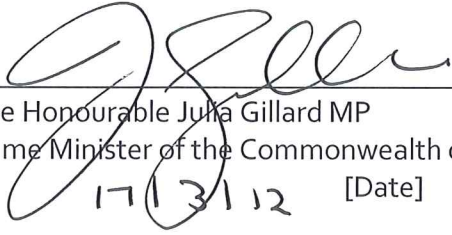 e Honourable Julia Gillard MP
me Minister of the Commonwealth o
17/3/12 [Date]